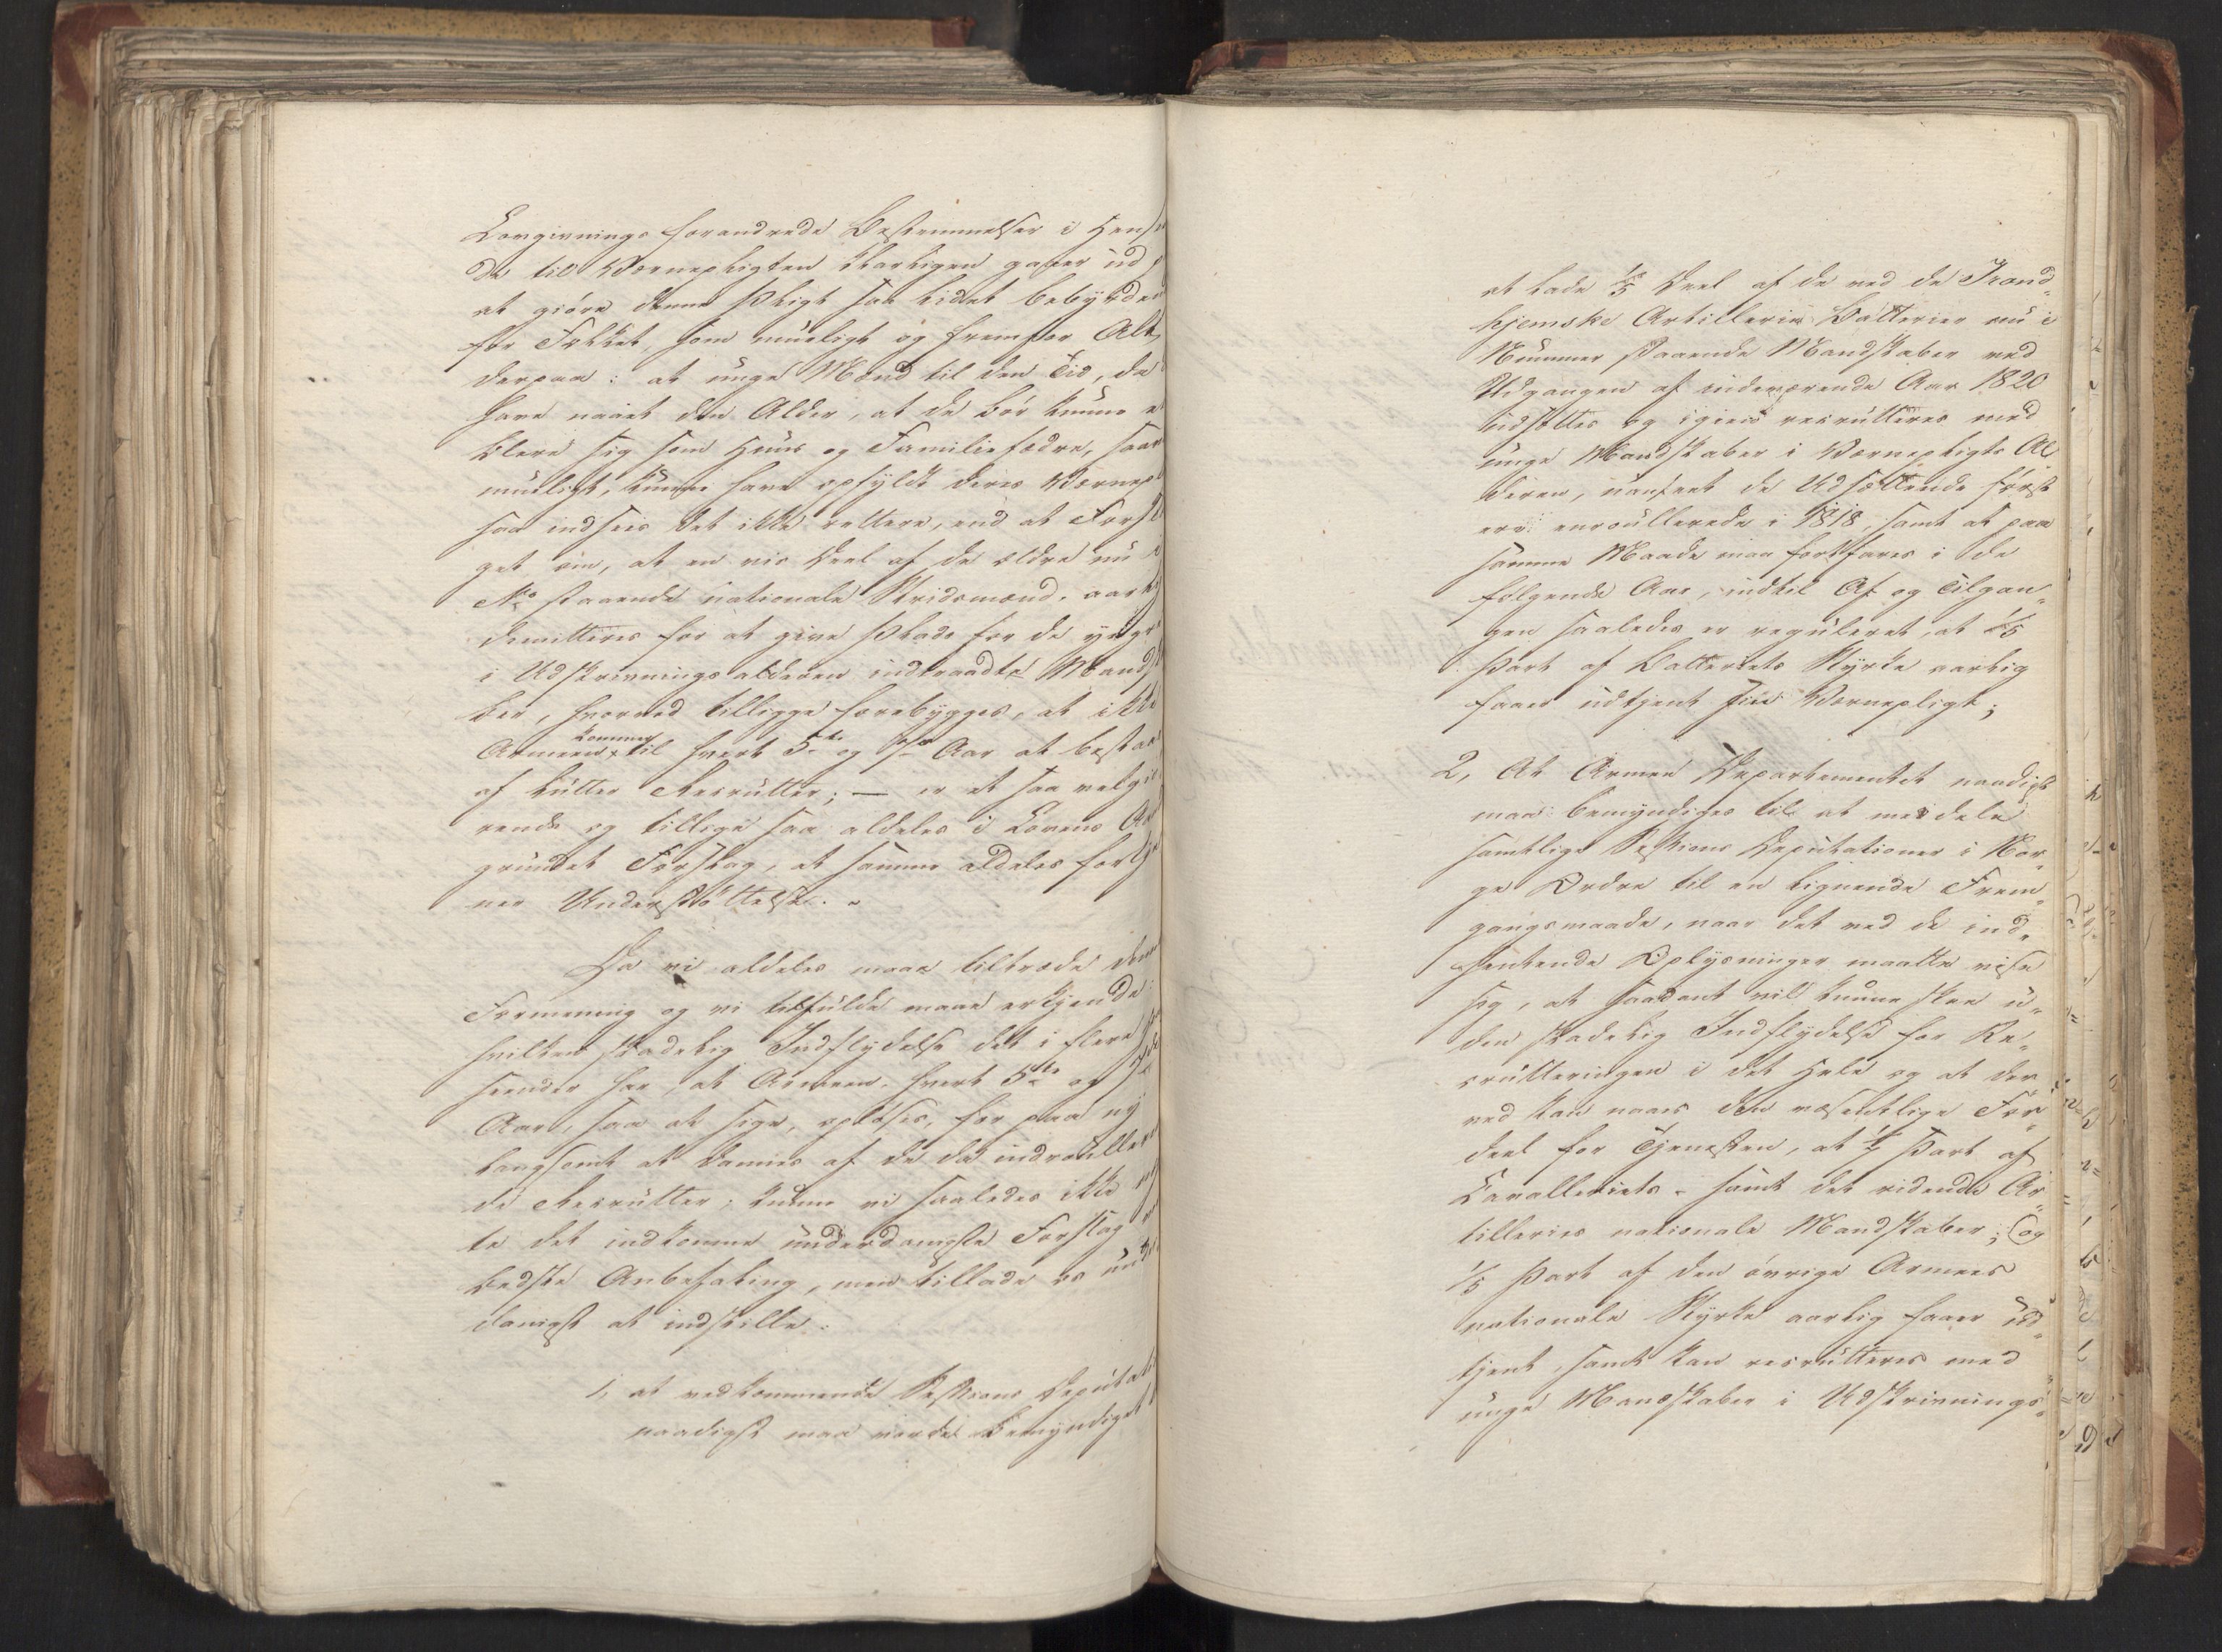 Lovgivnings forandrede Bestemmelser i Hense
de til Værnepligten klarligen gaaer ud p
at giöre denne Pligt saa lidet bebyrden
for Folket, som mueligt og fremfor Alt,
derpaa: at unge Mænd til den Tid, da
have naaet den Alder, at de bör kunne e
blere sig som Huus og Familiefædre, saa
mueligt, kunne have opfyldt deres Værnep
saa indsees det ikke rettere, end at Forsl
get om, at en vis Deel af de ældre nu i
No staaende nationale Stridsmænd, aarl
demitteres for at give Plads for de yngr
i Udskrivningsalderen indtraadte Mandsk
ber, hvorved tilligge forebygges, at ikke
Armeen kommer til hvert 5te og 7de Aar at bestaae
af lutter Recrutter; — er et saa velgiö
rende og tillige saa aldeles i Lovens And
grundet Forslag, at samme aldeles fortje
ner Understöttelse.
Da vi aldeles maae tiltræde denne
Formening og vi tilfulde maae erkjende
hvilken skadelig Indflydelse det i flere
seender har, at Armeen, hvert 5te og 7de
Aar, saa at sige, oplöses, for paa ny
langsomt at dannes af de da indroullere
de Recrutter; kunne vi saaledes ikke
te det indkomne underdanigste Forslag
bedste Anbefaling, men tillade os und
danigst at indstille:
1, at vedkommende Sessions Deputat
naadigst maa vorde bemyndiget t
at lade 1/5 Deel af de ved de Trond„
hjemske Artillerie Batterier nu i
Nummer staaende Mandskaber ved
Udgangen af indeværende Aar 1820
udsættes og igien recrutteres med
unge Mandskaber i Værnepligts Al„
deren, uanseet de Udsættende först
ere enroullerede i 1818, samt at paa
samme Maade maa fortfares i de
fölgende Aar, indtil Af og Tilgan„
gen saaledes er reguleret, at 1/5
Part af Batteriets Styrke aarlig
faaer udtjent sin Værnepligt;
2, At Armee Departementet naadigst
maa bemyndiges til at meddele
samtlige Sessions Deputationer i Nor„
ge Ordre til en lignende Frem„
gangsmaade, naar det ved de ind„
hentende Oplysninger maatte vise
sig, at saadant vil kunne skee u„
den skadelig Indflydelse for Re„
crutteringen i det Hele og at der„
ved kan naaes den væsentlige For„
deel for Tjenesten, at 1/7 Part af
Cavalleriets- samt det ridende Ar„
tilleries nationale Mandskaber; og
1/5 Part af den övrige Armees
nationale Styrke aarlig faaer ud„
tjent, samt kan recrutteres med
unge Mandskaber i Udskrivnings„